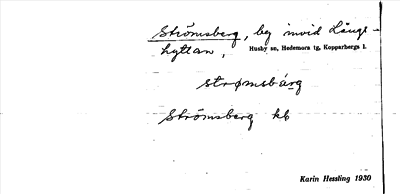 Strömsberg, by invid Långs-
hyttan, Husby sn, Hedemora tg, Kopparbergs l.
strømsbárg
Strömsberg kb
Karin Hessling 1930